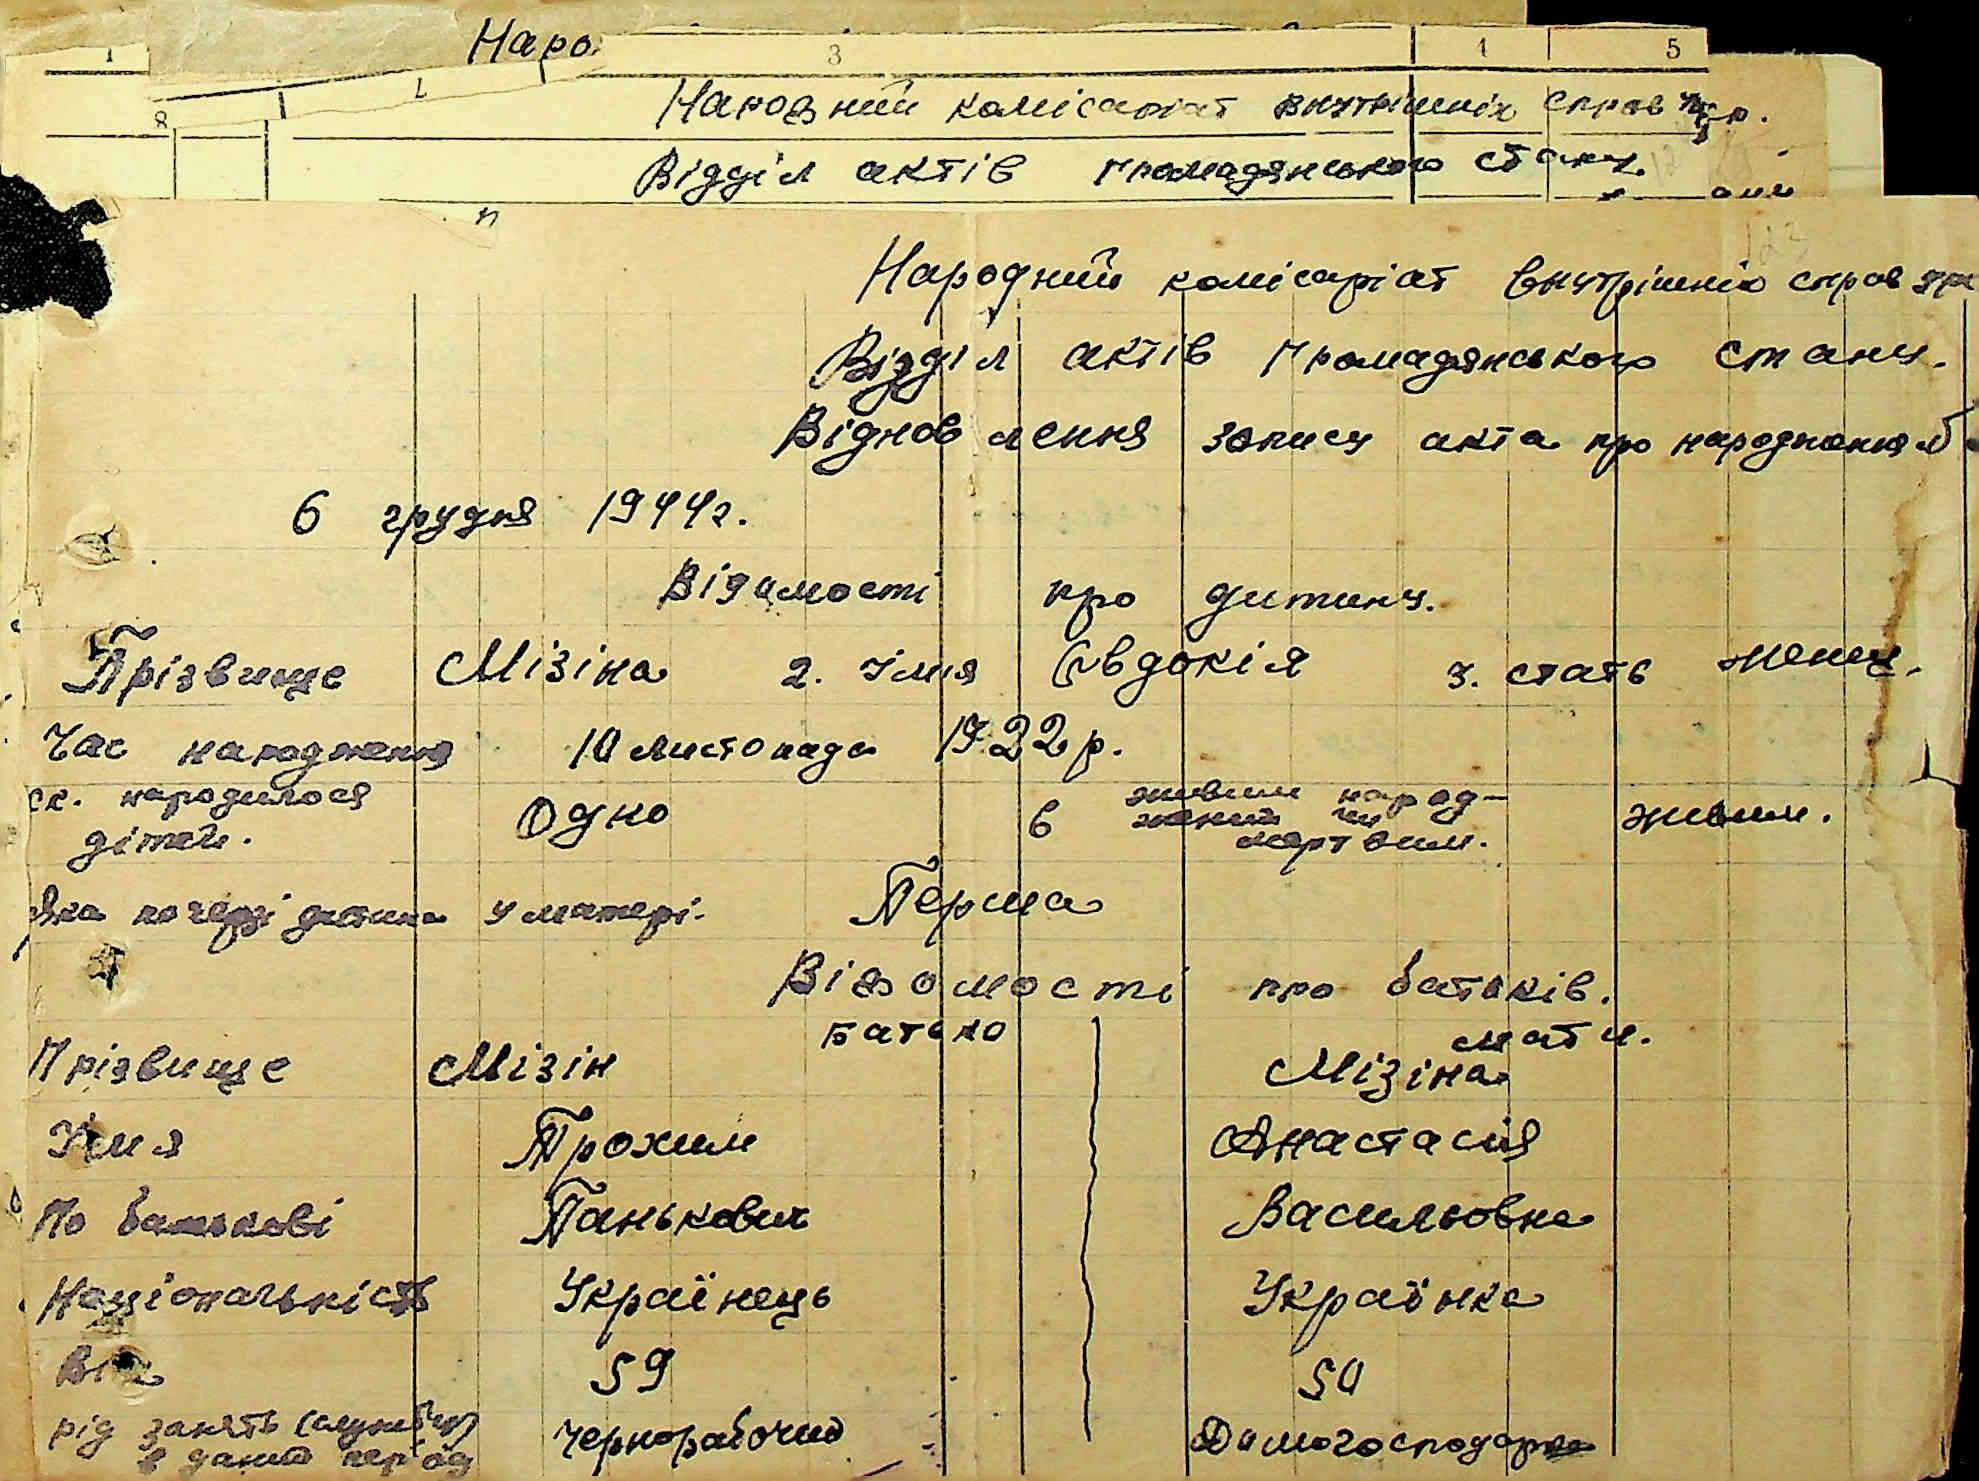 Наро
1 3 4 5
7
8
Народний комісаріат внутрішніх справ
Відділ актів громадянського стану.
Народний комісаріат внутрішніх справ
Відділ актів громадянського стану.
Відновлення запису акта про народження
6 грудня 1944г.
Відамості про дитину.
Прізвище Мізіна 2. Імя Євдокія 3. стать женсь.
Час народження 10 листопада 1922 р.
ск. народилося дітей. Одно в живим народ-жений чи мертвим. живим.
Яка по черзі дитина у матері. Перша
Відомості про батьків.
Батько мати.
Прізвище Мізін Мізіна
Імя Трохим Анастасія
По батькові Панькович Васильовна
Національність Українець Українка
Вік 59 50
рід занять (службу) в даний період чернорабочий Домогосподарка